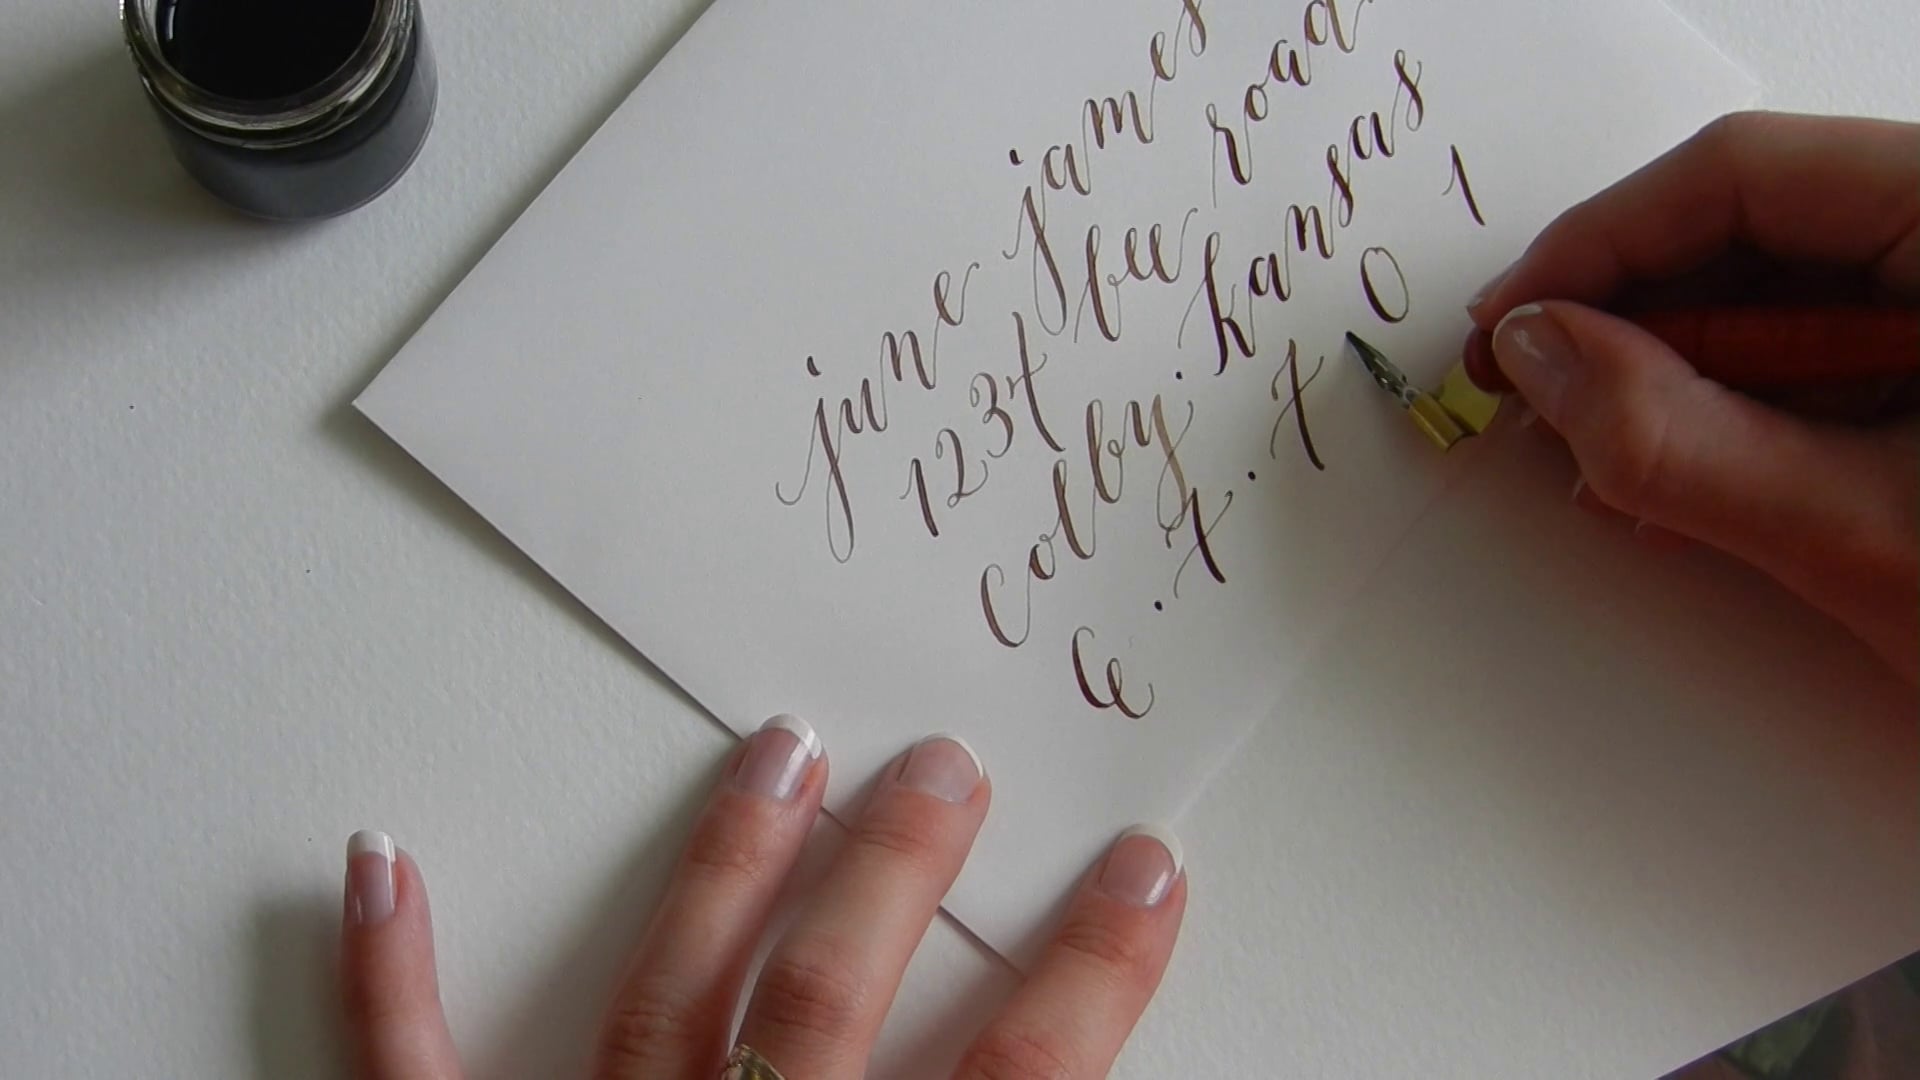 june james
1234 bee road
colby, kansas
6 · 7 · 7 0 1